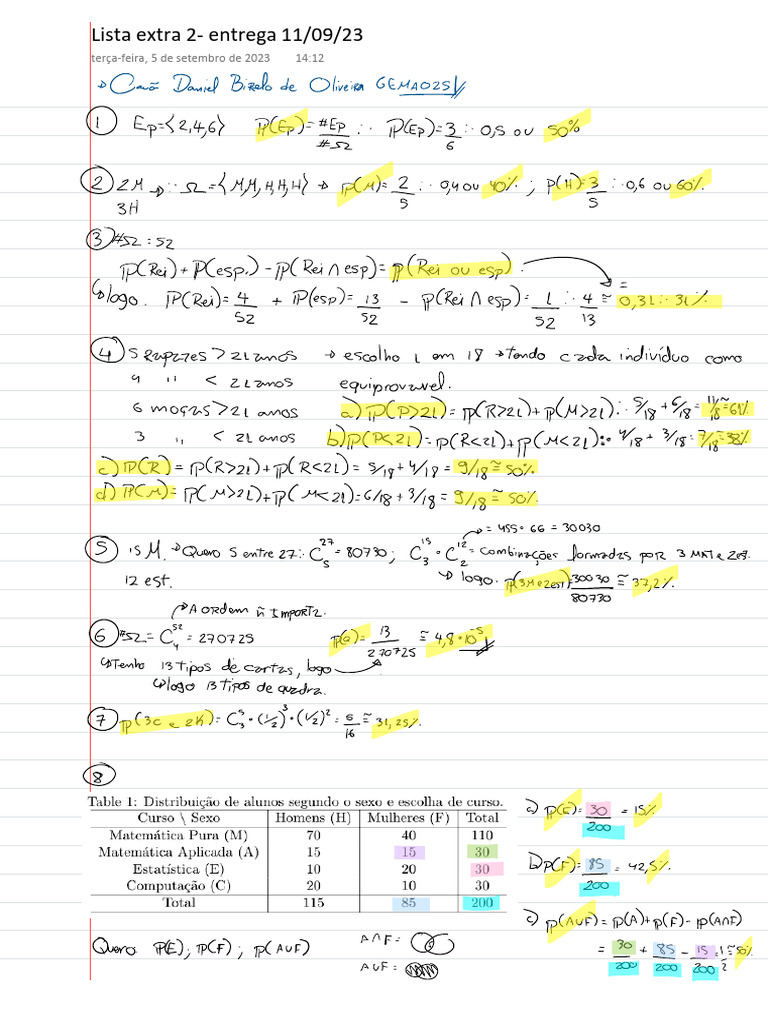 Lista extra 2- entrega 11/09/23
terça-feira, 5 de setembro de 2023 14:12
→ Cauã Daniel Bizelo de Oliveira GEMAO25
1 Ep={2,4,6} P(Ep)=#Ep/#Ω ∴ P(Ep)=3/6 ∴ 0,5 ou 50%
2 2M → ∴ Ω={M,M,H,H,H} → P(M)=2/5 ∴ 0,4 ou 40% ; P(H)=3/5 ∴ 0,6 ou 60%.
3H
3 #Ω : 52
P(Rei)+P(esp.)-P(Rei∩esp)=P(Rei ou esp).
logo. P(Rei)=4/52 + P(esp)=13/52 - P(Rei∩esp)=1/52 ∴ 4/13 ≅ 0,31 ∴ 31%.
4 5 Rapazes > 21 anos → escolho 1 em 18 → Tendo cada indivíduo como
4 " < 21 anos equiprovavel.
6 moças > 21 anos a) P(P>21) = P(R>21)+P(M>21) ∴ 5/18 + 6/18 = 11/18 ≅ 61%
3 " < 21 anos b) P(P<21) = P(R<21)+P(M<21) ∴ 4/18 + 3/18 = 7/18 ≅ 38%
c) P(R) = P(R>21)+P(R<21) = 5/18 + 4/18 = 9/18 ≅ 50%.
d) P(M) = P(M>21)+P(M<21) = 6/18 + 3/18 = 9/18 ≅ 50%.
→ = 455 · 66 = 30030
5 15 M. → Quero 5 entre 27 ∴ C 27 5 = 80730 ; C 15 3 · C 12 2 = combinações formadas por 3 MAT e 2 es.
12 est. → logo. P(3M e 2est) = 30030/80730 ≅ 37,2%.
→ A ordem ñ importa.
6 #Ω = C 52 4 = 270725 P(Q) = 13/270725 ≅ 4,8·10⁻⁵
→ Tenho 13 tipos de cartas, logo
→ logo 13 tipos de quadra.
7 P(3C e 2K) = C 5 3 · (1/2)³ · (1/2)² = 5/16 ≅ 31,25%.
8
Table 1: Distribuição de alunos segundo o sexo e escolha de curso.
Curso \ Sexo Homens (H) Mulheres (F) Total
Matemática Pura (M) 70 40 110
Matemática Aplicada (A) 15 15 30
Estatística (E) 10 20 30
Computação (C) 20 10 30
Total 115 85 200
a) P(E) = 30/200 = 15%
b) P(F) = 85/200 = 42,5%
c) P(A∪F) = P(A)+P(F)-P(A∩F)
= 30/200 + 85/200 - 15/200 ∴ 1/2 ≅ 50%
Quero P(E); P(F) ; P(A∪F)
A∩F:
A∪F: